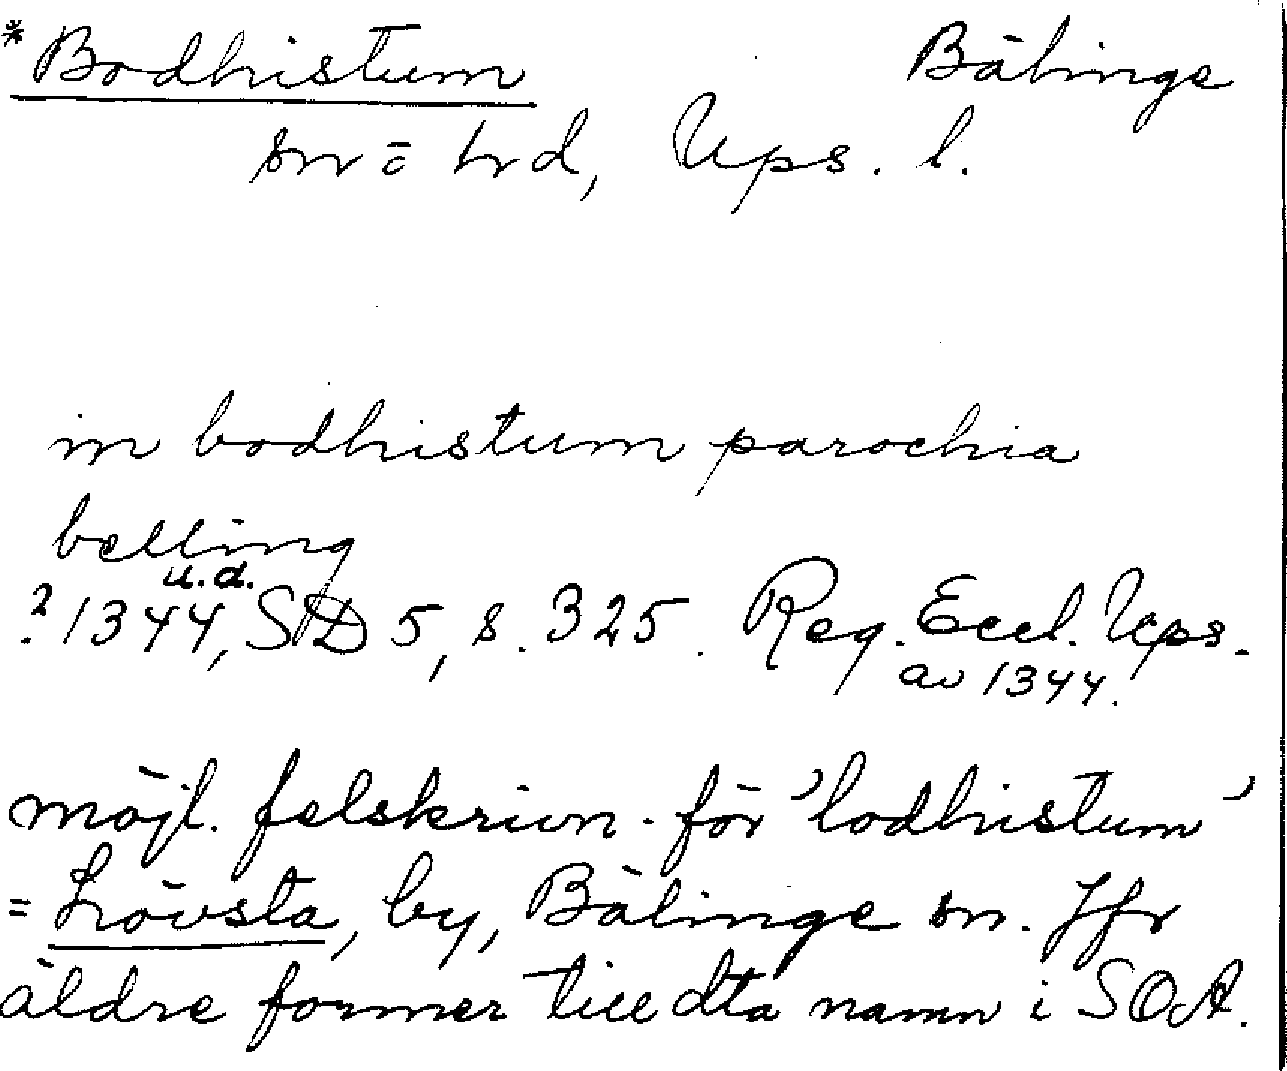 *Bodhistum Bälinge
sn o hd, Ups. l.
in bodhistum parochia
belling
u.d.
? 1344, SD 5, s. 325. Reg. Eccl. Ups.
av 1344.
möjl. felskrivn. för 'lodhistum'
= Lövsta, by, Bälinge sn. Jfr
äldre former till dta namn i SOA.